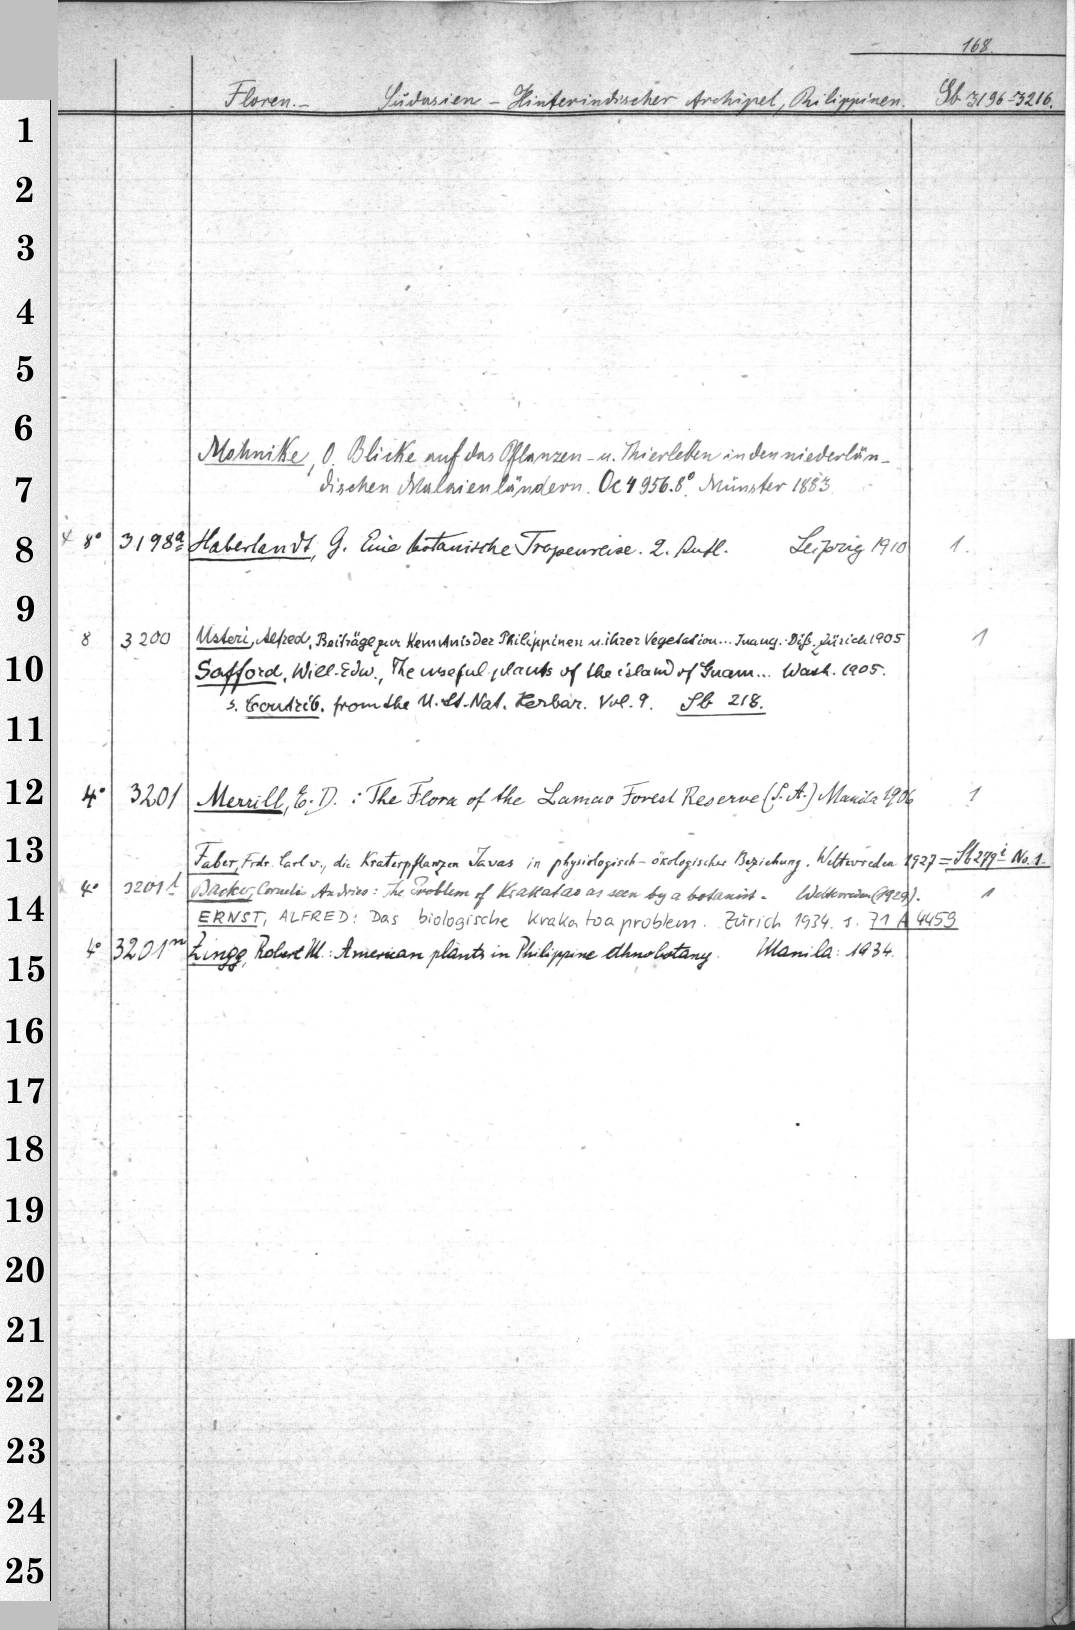 168.
Floren. – Südasien – Hinterindischer Archipel, Philippinen. Sb 3196–3216.
1
2
3
4
5
6
Mohnike, O. Blicke auf das Pflanzen- u. Thierleben in den niederlän-
7 dischen Malaienländern. Oc 4956.8° Münster 1883
8 x 8° 3198a Haberlandt, G. Eine botanische Tropenreise. 2. Aufl. Leipzig 1910 1.
9
8 3200 Usteri, Alfred, Beiträge zur Kenntnis der Philippinen u. ihrer Vegetation... Inaug.-Diß. Zürich 1905 1
10 Safford, Will. Edw., The useful plants of the island of Guam... Wash. 1905.
s. Contrib. from the U. St. Nat. Herbar. Vol. 9. Sb 218.
11
12 4° 3201 Merrill, E. D. : The Flora of the Lamao Forest Reserve (S. A.) Manila 1906 1
13 Faber, Frdr. Carl v., die Kraterpflanzen Javas in physiologisch-ökologischer Beziehung. Weltevreden 1927 = Sb 279i No. 1.
x 4° 3201 Backer, Cornelis Andries: The Problem of Krakatao as seen by a botanist. Weltevreden (1929). 1
14 ERNST, ALFRED: Das biologische Krakatoaproblem. Zürich 1934. s. 71 A 4459
4° 3201m Zingg, Robert M.: American plants in Philippine ethnobotany. Manila: 1934.
15
16
17
18
19
20
21
22
23
24
25